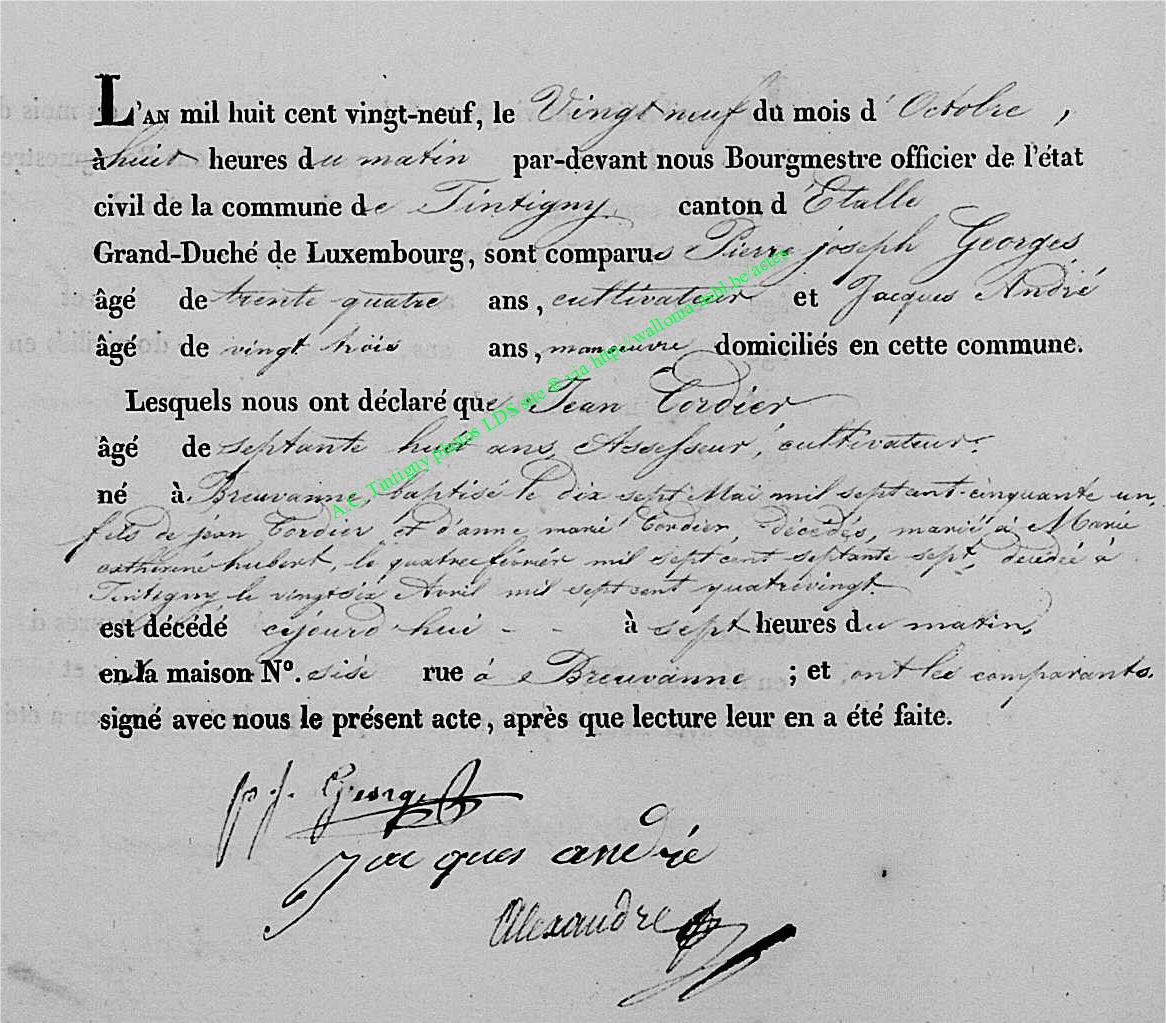 L'AN mil huit cent vingt-neuf, le Vingt neuf du mois d' Octobre,
à huit heures du matin par-devant nous Bourgmestre officier de l'état
civil de la commune de Tintigny canton d'Etalle
Grand-Duché de Luxembourg, sont comparus Pierre joseph Georges
âgé de trente quatre ans, cultivateur et Jacques André
âgé de vingt trois ans, manoeuvre domiciliés en cette commune.
Lesquels nous ont déclaré que Jean Cordier
âgé de septante huit ans, Assesseur, cultivateur
né à Breuvanne, baptisé le dix sept Mai mil septcent cinquante un,
fils de jean Cordier et d'anne marie Cordier, décédés, marié à Marie
catherine hubert, le quatre février mil sept cent septante sept, décédée à
Tintigny le vingtsix Avril mil sept cent quatrevingt
est décédé cejourd'hui - - à sept heures du matin,
en la maison N°. sise rue à Breuvanne ; et ont les comparants
signé avec nous le présent acte, après que lecture leur en a été faite.
A.C. Tintigny photos LDS site © via http://wallonia-asbl.be/actes
p j. Georges
Jacques andré
Alexandre